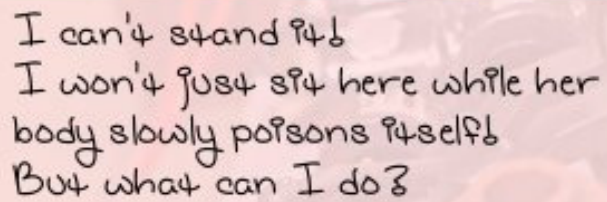 I can't stand it!
I won't just sit here while her
body slowly poisons itself!
But what can I do?